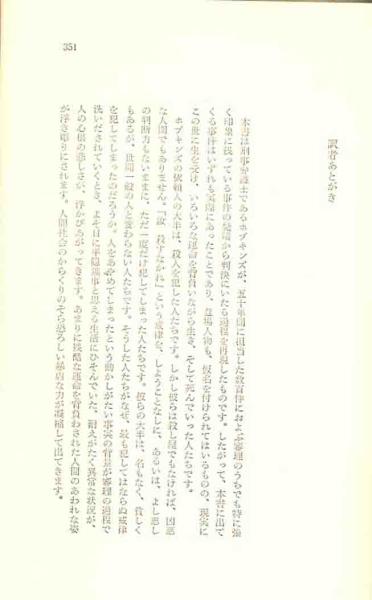 351
訳者あとがき
本書は刑事弁護士であるホプキンズが、五十年間に担当した数百件におよぶ審理のうちでも特に強
く印象に残っている事件の発端から判決にいたる過程を再現したものです。したがって、本書に出て
くる事件はいずれも実際にあったことであり、登場人物も、仮名を付けられてはいるものの、現実に
この世に生を受け、いろいろな運命を背負いながら生き、そして死んでいった人たちです。
ホプキンズの依頼人の大半は、殺人を犯した人たちです。しかし彼らは殺し屋でもなければ、凶悪
な人間でもありません。「汝、殺すなかれ」という戒律を、しようことなしに、あるいは、よし悪し
の判断力もないままに、ただ一度だけ犯してしまった人たちです。彼らの大半は、名もなく、貧しく
もあるが、世間一般の人と変わらない人たちです。そうした人たちがなぜ、最も犯してはならぬ戒律
を犯してしまったのだろうか。人をあやめてしまったという動かしがたい事実の背景が審理の過程で
洗いだされていくとき、よそ目に平穏無事と思える生活にひそんでいた、耐えがたく異常な状況が、
人の心根の悲しさが、浮かびあがってきます。あまりに残酷な運命を背負わされた人間のあわれな姿
が浮き彫りにされます。人間社会のからくりのそら恐ろしい暴虐な力が凝縮して出てきます。